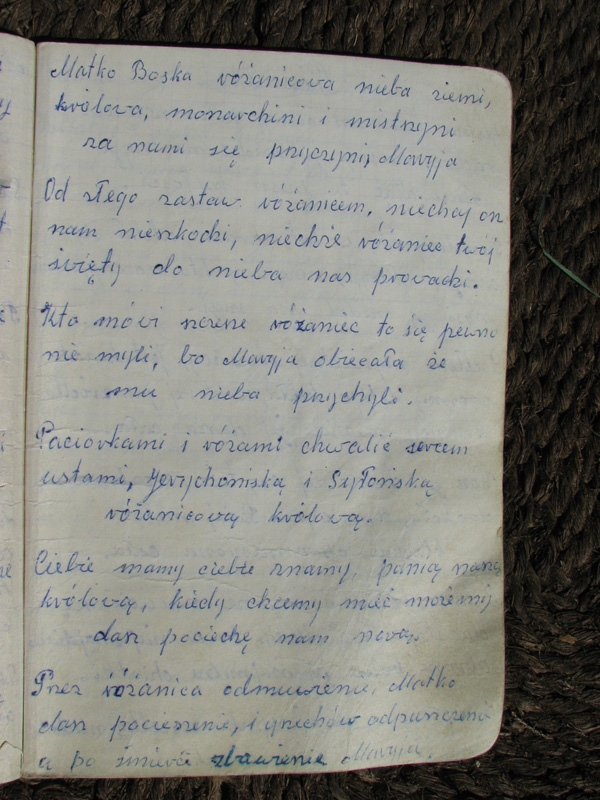 Matko Boska różanicowa nieba ziemi,
królowa, monarchini i mistrzyni
za nami się przyczyni, Maryja
Od złego zastaw różanicem, niechaj on
nam nieszkocki, niechże różaniec twój
święty do nieba nas provacki.
Kto mówi szczeze różaniec to się pewno
nie myli, bo Maryja obiecała że
mu nieba przychyli.
Paciorkami i różami chwalić sercem
ustami, Jerychoniską i Syłońską
różanicową królową.
Ciebie mamy ciebie znamy, panią naszą
królową, kiedy chcemy mieć możemy
dasz pociechę nam nową.
Przez różanica odmuwienie, Matko
dasz pocieszenie, i grzechów odpuszczenie
a po śmierci zbawienie Maryja.